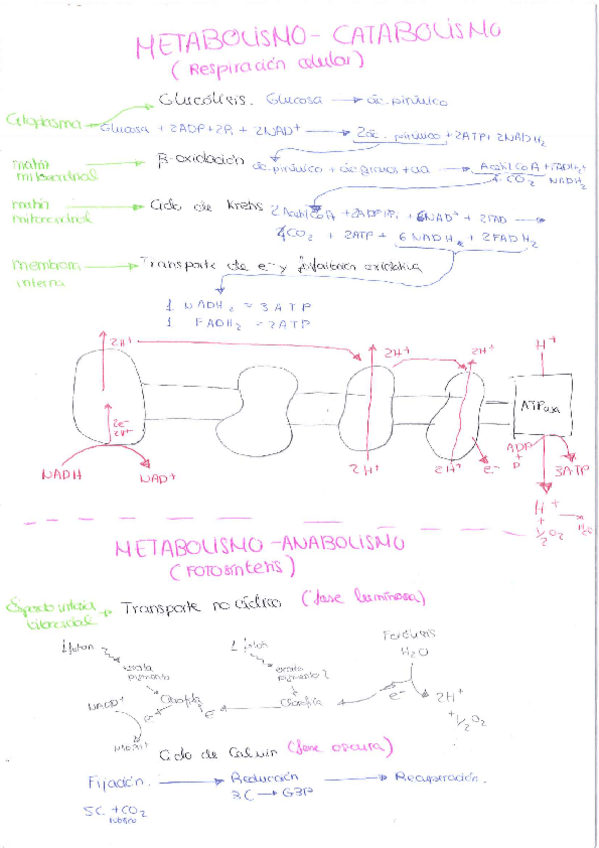 METABOLISMO - CATABOLISMO
(Respiración celular)
Glucólisis. Glucosa → ác. pirúvico
Citoplasma
Glucosa + 2ADP+2Pi + 2NAD+ → 2ác. pirúvico + 2ATP+ 2NADH2
matriz mitocondrial
β-oxidación ác. pirúvico + ác. grasos + aa → Acetil CoA + FADH2 +
CO2 NADH2
matriz mitocondrial
Ciclo de Krebs 2 Acetil CoA + 2ADP+Pi + 6NAD+ + 2FAD →
4CO2 + 2ATP + 6NADH2 + 2FADH2
membrana interna
Transporte de e- y fosforilación oxidativa
1 NADH2 = 3ATP
1 FADH2 = 2ATP
2H+
2H+
2H+
H+
2e-
2H+
ATPasa
NADH
NAD+
2H+
2H+
e-
ADP
+
P
3ATP
H+
+
1/2O2
→ H2O
METABOLISMO - ANABOLISMO
(FOTOSÍNTESIS)
tilacoidal
Transporte no cíclico (fase luminosa)
1 foton
1 foton
Fotólisis
H2O
excita pigmento
excita pigmento
NADP+
Clorofila
e-
e-
Clorofila
e-
2H+
+ 1/2O2
Ciclo de Calvin (fase oscura)
Fijación → Reducción → Recuperación.
3C → G3P
5C + CO2
rubisco